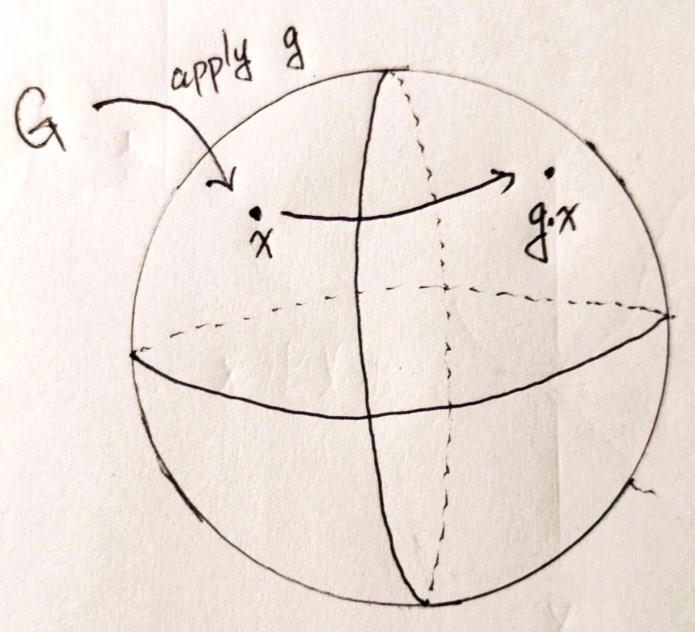 apply g
G
x
g.x